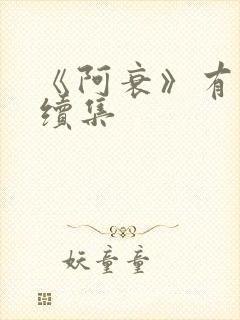 《阿衰》有
續集
妖童童